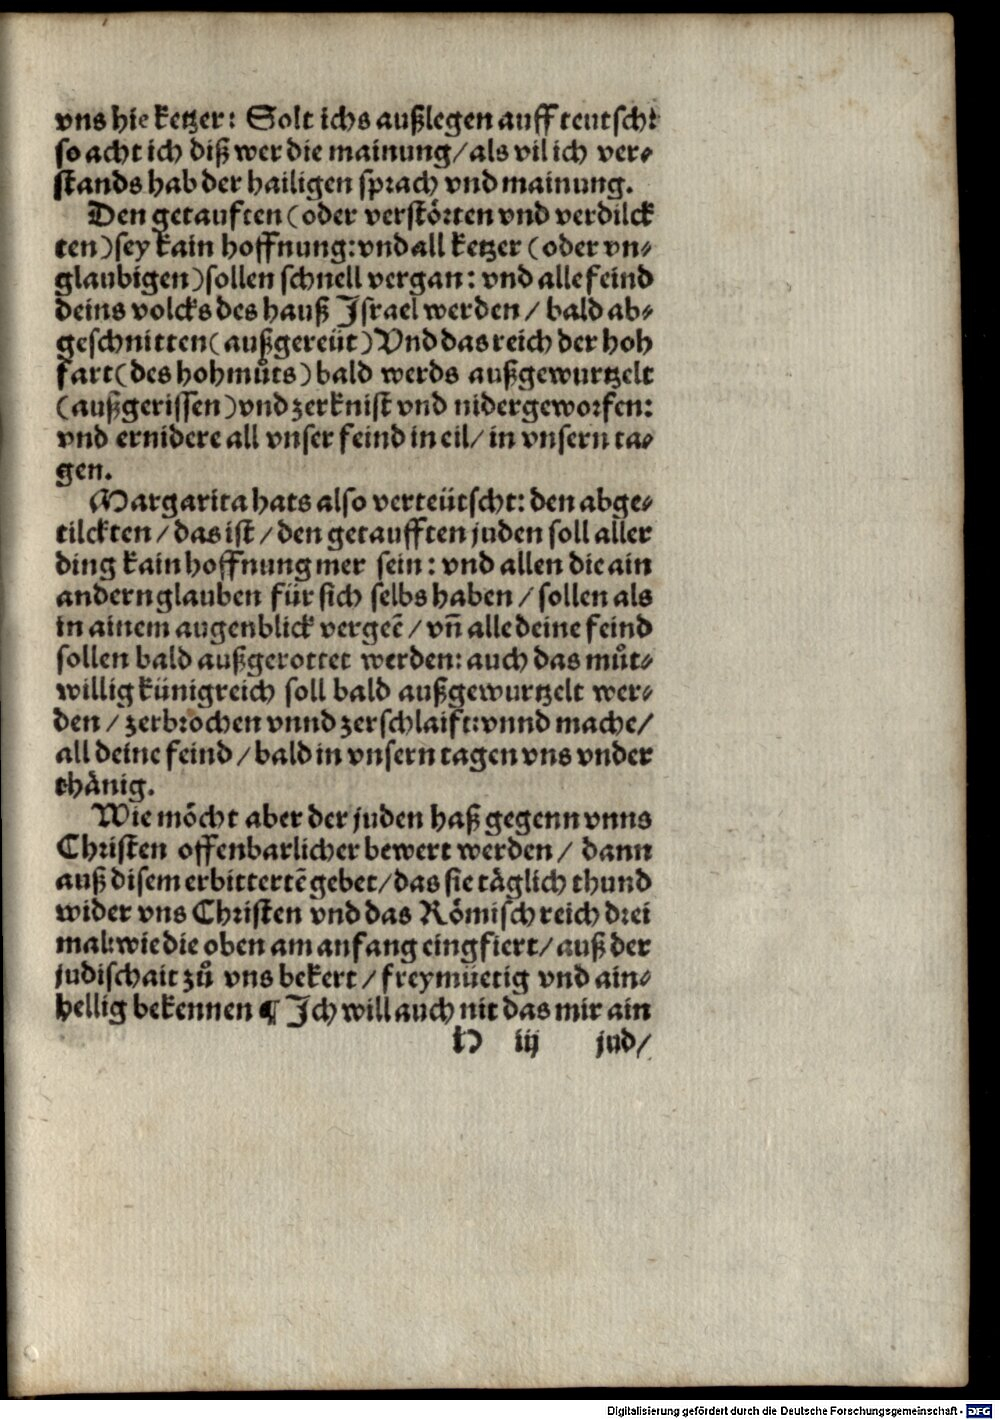 vns hie ketzer: Solt ichs außlegen auff teutsch:
so acht ich diß wer die mainung/als vil ich ver⸗
stands hab der hailigen sprach vnd mainung.
Den getauften (oder verstörten vnd verdilck
ten) sey kain hoffnung: vnd all ketzer (oder vn⸗
glaubigen) sollen schnell vergan: vnd alle feind
deins volcks des hauß Israel werden/ bald ab⸗
geschnitten (außgereüt) Vnd das reich der hoh
fart (des hohmůts) bald werds außgewurtzelt
(außgerissen) vnd zerknist vnd nidergeworfen:
vnd ernidere all vnser feind in eil/ in vnsern ta⸗
gen.
Margarita hats also verteütscht: den abge⸗
tilckten/das ist/den getaufften juden soll aller
ding kain hoffnung mer sein: vnd allen die ain
andern glauben für sich selbs haben/sollen als
in ainem augenblick vergeē/vñ alle deine feind
sollen bald außgerottet werden: auch das můt⸗
willig künigreich soll bald außgewurtzelt wer⸗
den/zerbrochen vnnd zerschlaift: vnnd mache/
all deine feind/bald in vnsern tagen vns vnder
thänig.
Wie möcht aber der juden haß gegenn vnns
Christen offenbarlicher bewert werden/ dann
auß disem erbittertē gebet/das sie täglich thund
wider vns Christen vnd das Römisch reich drei
mal: wie die oben am anfang eingfiert/auß der
judischait zů vns bekert/freymüetig vnd ain⸗
hellig bekennen ¶ Ich will auch nit das mir ain
D iij jud/
Digitalisierung gefördert durch die Deutsche Forschungsgemeinschaft - DFG